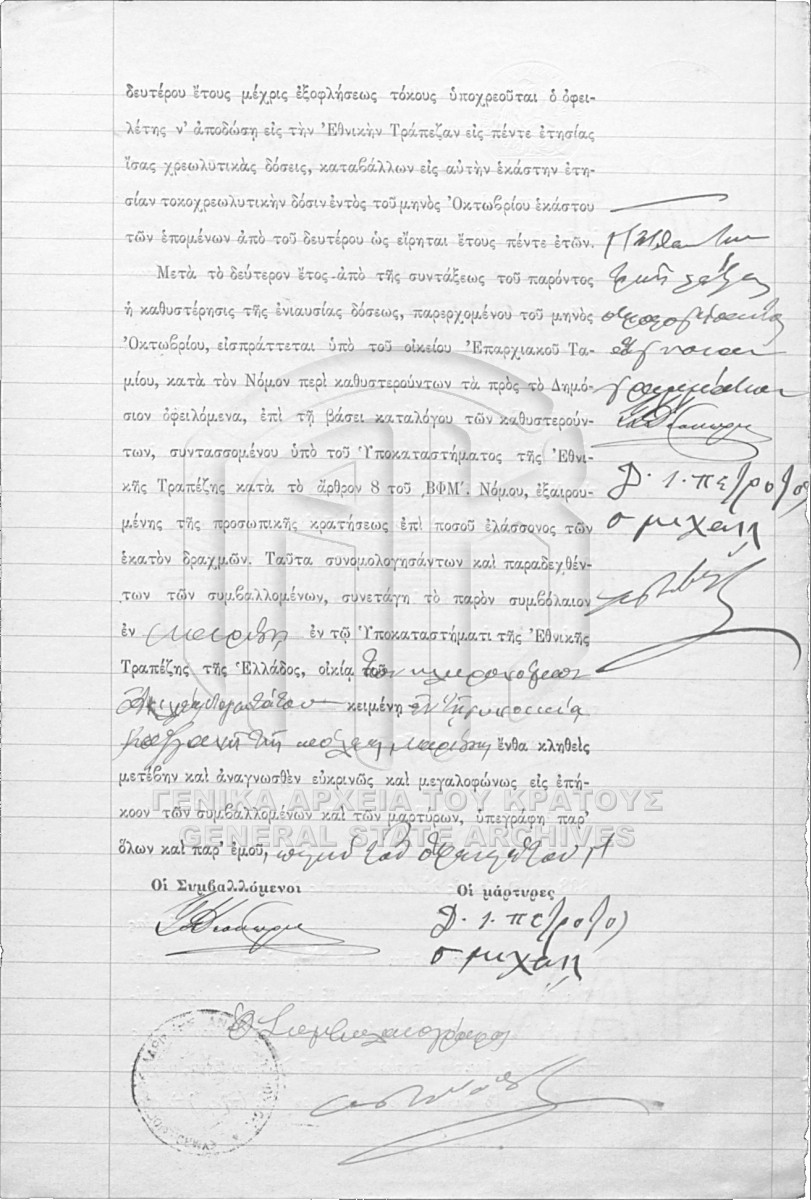 δευτέρου ἔτους μέχρις ἐξοφλήσεως τόκους ὑποχρεοῦται ὁ ὀφει-
λέτης ν' ἀποδώσῃ εἰς τὴν Ἐθνικὴν Τράπεζαν εἰς πέντε ἐτησίας
ἴσας χρεωλυτικὰς δόσεις, καταβάλλων εἰς αὐτὴν ἑκάστην ἐτη-
σίαν τοκοχρεωλυτικὴν δόσιν ἐντὸς τοῦ μηνὸς Ὀκτωβρίου ἑκάστου
τῶν ἑπομένων ἀπὸ τοῦ δευτέρου ὡς εἴρηται ἔτους πέντε ἐτῶν.
Μετὰ τὸ δεύτερον ἔτος ἀπὸ τῆς συντάξεως τοῦ παρόντος
ἡ καθυστέρησις τῆς ἐνιαυσίας δόσεως, παρερχομένου τοῦ μηνὸς
Ὀκτωβρίου, εἰσπράττεται ὑπὸ τοῦ οἰκείου Ἐπαρχιακοῦ Τα-
μίου, κατὰ τὸν Νόμον περὶ καθυστερούντων τὰ πρὸς τὸ Δημό-
σιον ὀφειλόμενα, ἐπὶ τῇ βάσει καταλόγου τῶν καθυστερούν-
των, συντασσομένου ὑπὸ τοῦ Ὑποκαταστήματος τῆς Ἐθνι-
κῆς Τραπέζης κατὰ τὸ ἄρθρον 8 τοῦ ͵ΒΦΜ΄. Νόμου, ἐξαιρου-
μένης τῆς προσωπικῆς κρατήσεως ἐπὶ ποσοῦ ἐλάσσονος τῶν
ἑκατὸν δραχμῶν. Ταῦτα συνομολογησάντων καὶ παραδεχθέν-
των τῶν συμβαλλομένων, συνετάγη τὸ παρὸν συμβόλαιον
ἐν Λαρίσῃ ἐν τῷ Ὑποκαταστήματι τῆς Ἐθνικῆς
Τραπέζης τῆς Ἑλλάδος, οἰκίᾳ τῶν κληρονόμων
κειμένῃ ἐν τῇ συνοικίᾳ
Λαρίσης ἔνθα κληθεὶς
μετέβην καὶ ἀναγνωσθὲν εὐκρινῶς καὶ μεγαλοφώνως εἰς ἐπή-
κοον τῶν συμβαλλομένων καὶ τῶν μαρτύρων, ὑπεγράφη παρ'
ὅλων καὶ παρ' ἐμοῦ, πλὴν τοῦ
γραμμάτων
Δ. Ι. πετροτος
σ μιχαηλ
Οἱ Συμβαλλόμενοι Οἱ μάρτυρες
Δ. Ι. πετροτος
σ μιχαηλ
Ὁ Συμβολαιογράφος
ΓΕΝΙΚΑ ΑΡΧΕΙΑ ΤΟΥ ΚΡΑΤΟΥΣ
GENERAL STATE ARCHIVES